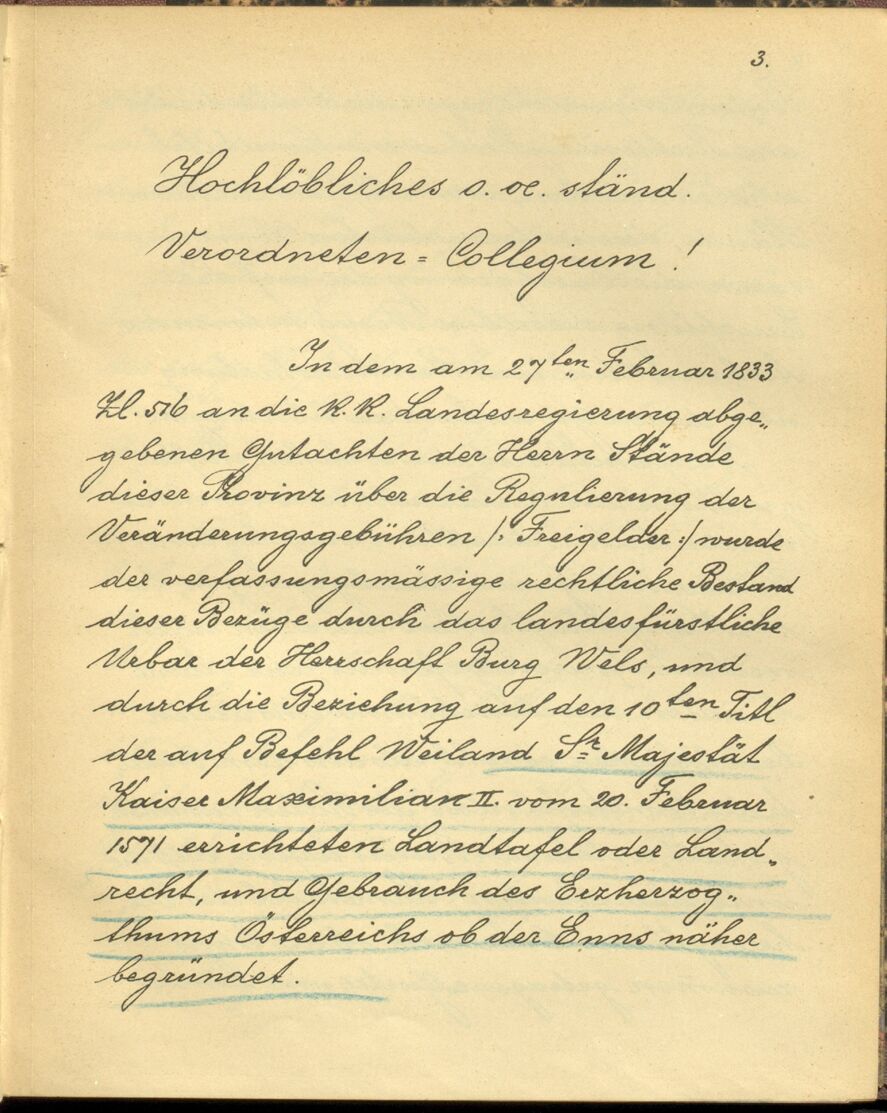 3.
Hochlöbliches o. oe. ständ.
Verordneten = Collegium !
In dem am 27ten Februar 1833
Zl. 516 an die k. k. Landesregierung abge„
gebenen Gutachten der Herrn Stände
dieser Provinz über die Regulierung der
Veränderungsgebühren /: Freigelder :/ wurde
der verfassungsmässige rechtliche Bestand
dieser Bezüge durch das landesfürstliche
Urbar der Herrschaft Burg Wels, und
durch die Beziehung auf den 10ten Titl
der auf Befehl Weiland Sr Majestät
Kaiser Maximilian II. vom 20. Februar
1571 errichteten Landtafel oder Land„
recht, und Gebrauch des Erzherzog„
thums Österreichs ob der Enns näher
begründet.